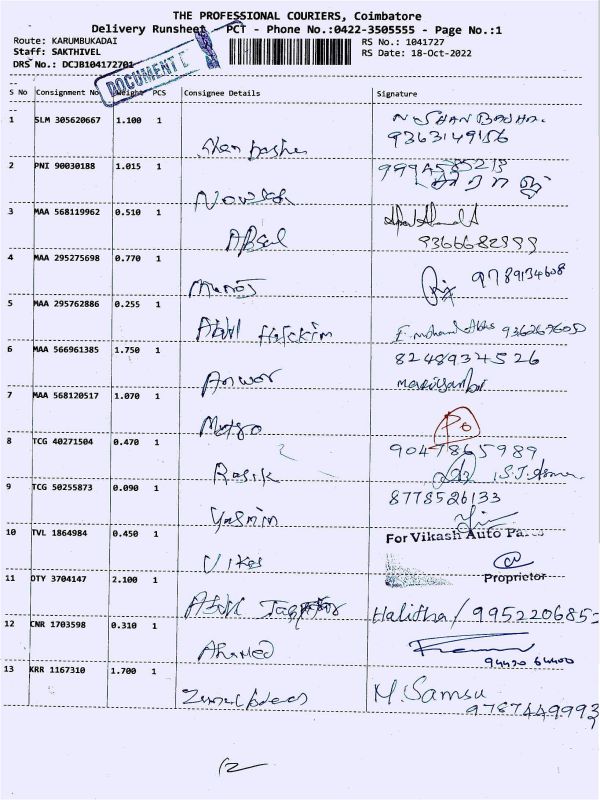 THE PROFESSIONAL COURIERS, Coimbatore
Delivery Runsheet PCT - Phone No.:0422-3505555 - Page No.:1
Route: KARUMBUKADAI RS No.: 1041727
Staff: SAKTHIVEL RS Date: 18-Oct-2022
DRS No.: DCJB104172701
DOCUMENT
S No Consignment No Weight PCS Consignee Details Signature
1 SLM 305620667 1.100 1
9363149156
2 PNI 90030188 1.015 1
3 MAA 568119962 0.510 1
Absal
4 MAA 295275698 0.770 1
Manoj 9789134608
5 MAA 295762886 0.255 1
Abdul
6 MAA 566961385 1.750 1 8248934526
Anwar
7 MAA 568120517 1.070 1
Metro Po
8 TCG 40271504 0.470 1 9047865989
Rasik
9 TCG 50255873 0.090 1 8778526133
Yasmin
10 TVL 1864984 0.450 1 For Vikash Auto
Vikas
11 OTY 3704147 2.100 1 Proprietor
Abdul Halitha /
12 CNR 1703598 0.310 1
Ahamed 94420 64400
13 KRR 1167310 1.700 1
M. Samsu
9787449993
12